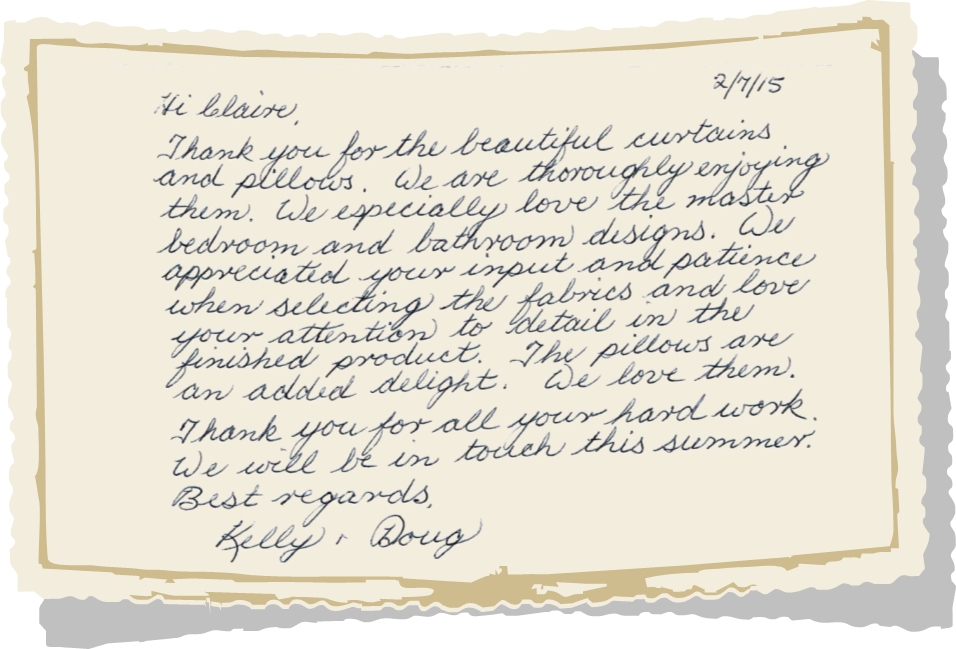 2/7/15
Hi Claire,
Thank you for the beautiful curtains
and pillows. We are thoroughly enjoying
them. We especially love the master
bedroom and bathroom designs. We
appreciated your input and patience
when selecting the fabrics and love
your attention to detail in the
finished product. The pillows are
an added delight. We love them.
Thank you for all your hard work.
We will be in touch this summer.
Best regards,
Kelly + Doug